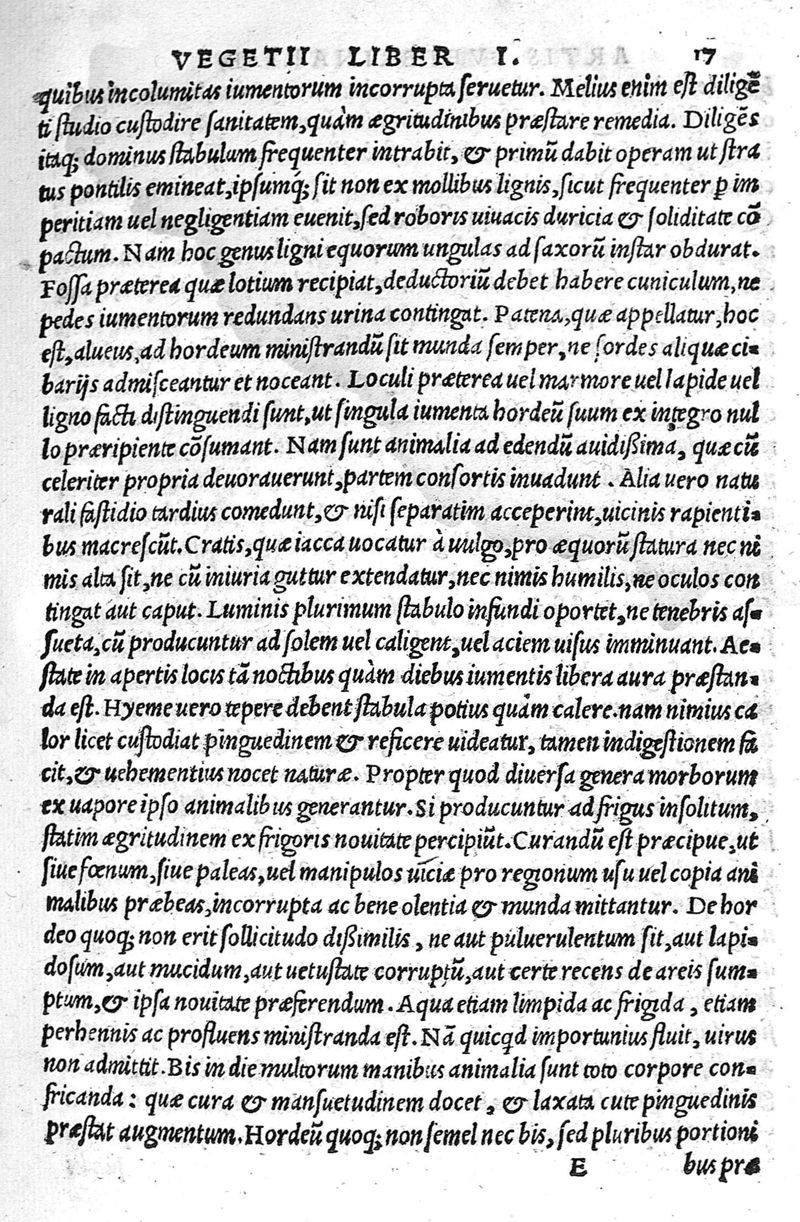 VEGETII LIBER I. 17
quibus incolumitas iumentorum incorrupta seruetur. Melius enim est diligẽ
ti studio custodire sanitatem, quàm ægritudinibus præstare remedia. Diligẽs
itaq; dominus stabulum frequenter intrabit, & primũ dabit operam ut stra
tus pontilis emineat, ipsumq́; sit non ex mollibus lignis, sicut frequenter ꝑ im
peritiam uel negligentiam euenit, sed roboris uiuacis duricia & soliditate cõ
pactum. Nam hoc genus ligni equorum ungulas ad saxorũ instar obdurat.
Fossa præterea quæ lotium recipiat, deductoriũ debet habere cuniculum, ne
pedes iumentorum redundans urina contingat. Patena, quæ appellatur, hoc
est, alueus, ad hordeum ministrandũ sit munda semper, ne sordes aliquæ ci-
barijs admisceantur et noceant. Loculi præterea uel marmore uel lapide uel
ligno facti distinguendi sunt, ut singula iumenta hordeũ suum ex integro nul
lo præripiente cõsumant. Nam sunt animalia ad edendũ auidißima, quæ cũ
celeriter propria deuorauerunt, partem consortis inuadunt. Alia uero natu
rali fastidio tardius comedunt, & nisi separatim acceperint, uicinis rapienti-
bus macrescũt. Cratis, quæ iacca uocatur à uulgo, pro æquorũ statura nec ni
mis alta sit, ne cũ iniuria guttur extendatur, nec nimis humilis, ne oculos con
tingat aut caput. Luminis plurimum stabulo infundi oportet, ne tenebris as-
sueta, cũ producuntur ad solem uel caligent, uel aciem uisus imminuant. Ae-
state in apertis locis tã noctibus quàm diebus iumentis libera aura præstan-
da est. Hyeme uero tepere debent stabula potius quàm calere. nam nimius ca
lor licet custodiat pinguedinem & reficere uideatur, tamen indigestionem fa
cit, & uehementius nocet naturæ. Propter quod diuersa genera morborum
ex uapore ipso animalibus generantur. Si producuntur ad frigus insolitum,
statim ægritudinem ex frigoris nouitate percipiũt. Curandũ est præcipue, ut
siue fœnum, siue paleas, uel manipulos uiciæ pro regionum usu uel copia ani
malibus præbeas, incorrupta ac bene olentia & munda mittantur. De hor
deo quoq; non erit sollicitudo dißimilis, ne aut puluerulentum sit, aut lapi-
dosum, aut mucidum, aut uetustate corruptũ, aut certe recens de areis sum-
ptum, & ipsa nouitate præferendum. Aqua etiam limpida ac frigida, etiam
perhennis ac profluens ministranda est. Nã quicqd importunius fluit, uirus
non admittit. Bis in die multorum manibus animalia sunt toto corpore con-
fricanda: quæ cura & mansuetudinem docet, & laxata cute pinguedinis
præstat augmentum. Hordeũ quoq; non semel nec bis, sed pluribus portioni
E bus præ